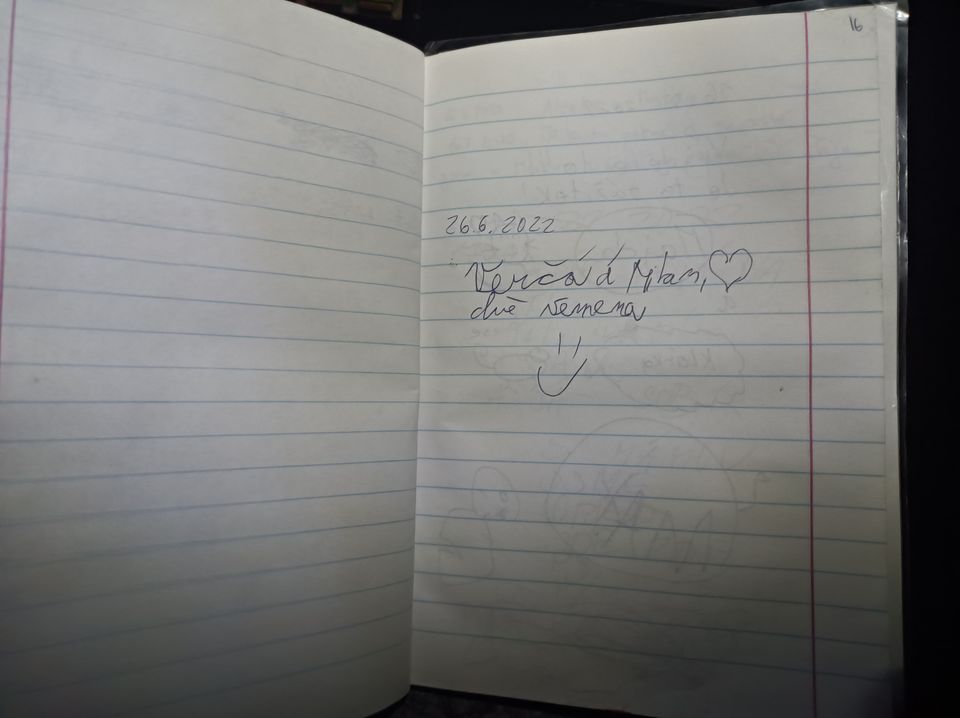 16
26.6.2022
Verča á Milan, ♡
dvě vemena